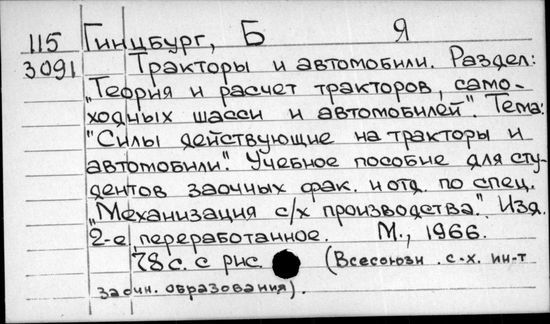 115 Гинцбург, Б Я
3091 Тракторы и автомобили. Раздел:
„Теория и расчет тракторов, само-
ходных шасси и автомобилей". Тема:
"Силы действующие на тракторы и
автомобили". Учебное пособие для сту-
дентов заочных фак. и отд. по спец.
„Механизация с/х производства". Изд.
2-е, переработанное. М., 1966.
78 с. с рис. (Всесоюзн. с.-х. ин-т
заочн. образования).